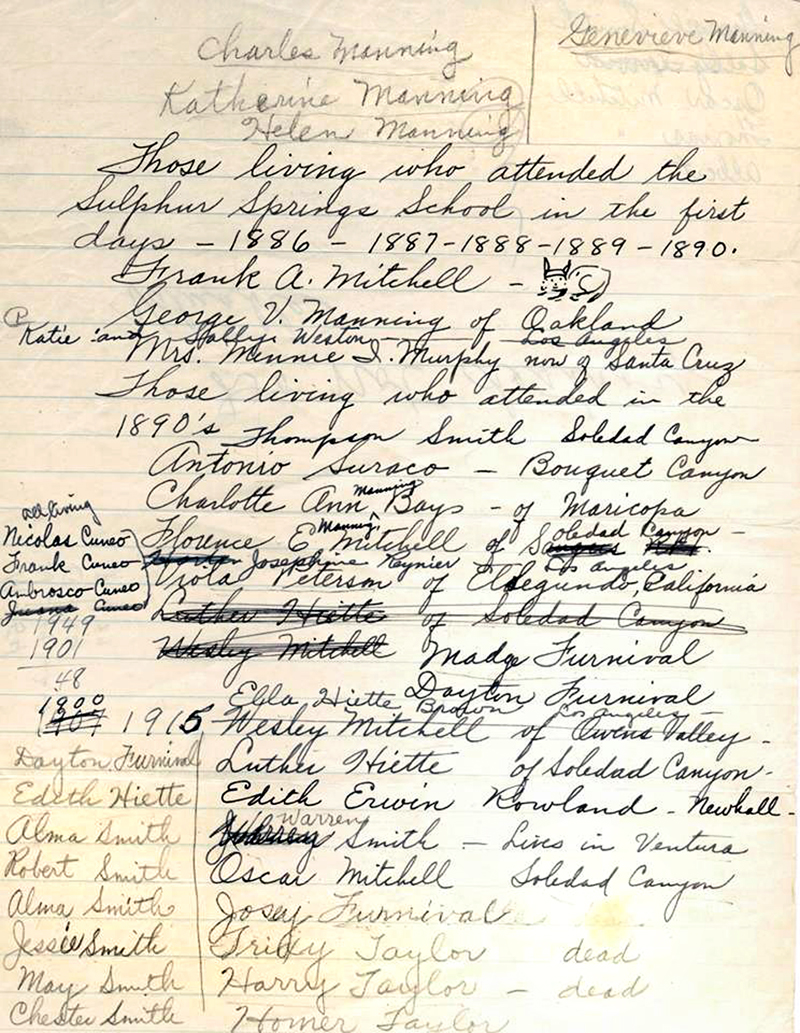 Charles Manning
Genevieve Manning
Katherine Manning
Helen Manning
Those living who attended the
Sulphur Springs School in the first
days - 1886 - 1887-1888-1889-1890.
Frank A. Mitchell -
George V. Manning of Oakland
Katie and Sallye Weston Los Angeles
Mrs. Minnie I. Murphy now of Santa Cruz
Those living who attended in the
1890's Thompson Smith Soledad Canyon
Antonio Suraco - Bouquet Canyon
Charlotte Ann Manning Bays - of Maricopa
All living
Nicolas Cuneo
Frank Cuneo
Ambrosco Cuneo
Juana Cuneo
Florence E Manning Mitchell of Soledad Canyon -
Josephine Reynier Los Angeles
Viola Peterson of Elsegundo, California
Luther Hiette of Soledad Canyon
1949
1901
48
Wesley Mitchell Madge Furnival
Dayton Furnival
Ella Hiette Brown Los Angeles -
1900
1907 1915 Wesley Mitchell of Owens Valley -
Dayton Furnival
Luther Hiette of Soledad Canyon -
Edith Hiette
Edith Erwin Rowland - Newhall -
Alma Smith
Warren Smith - Lives in Ventura
Robert Smith
Oscar Mitchell Soledad Canyon
Alma Smith
Josey Furnival
Jessie Smith
Taylor dead
May Smith
Harry Taylor - dead
Chester Smith
Homer Taylor